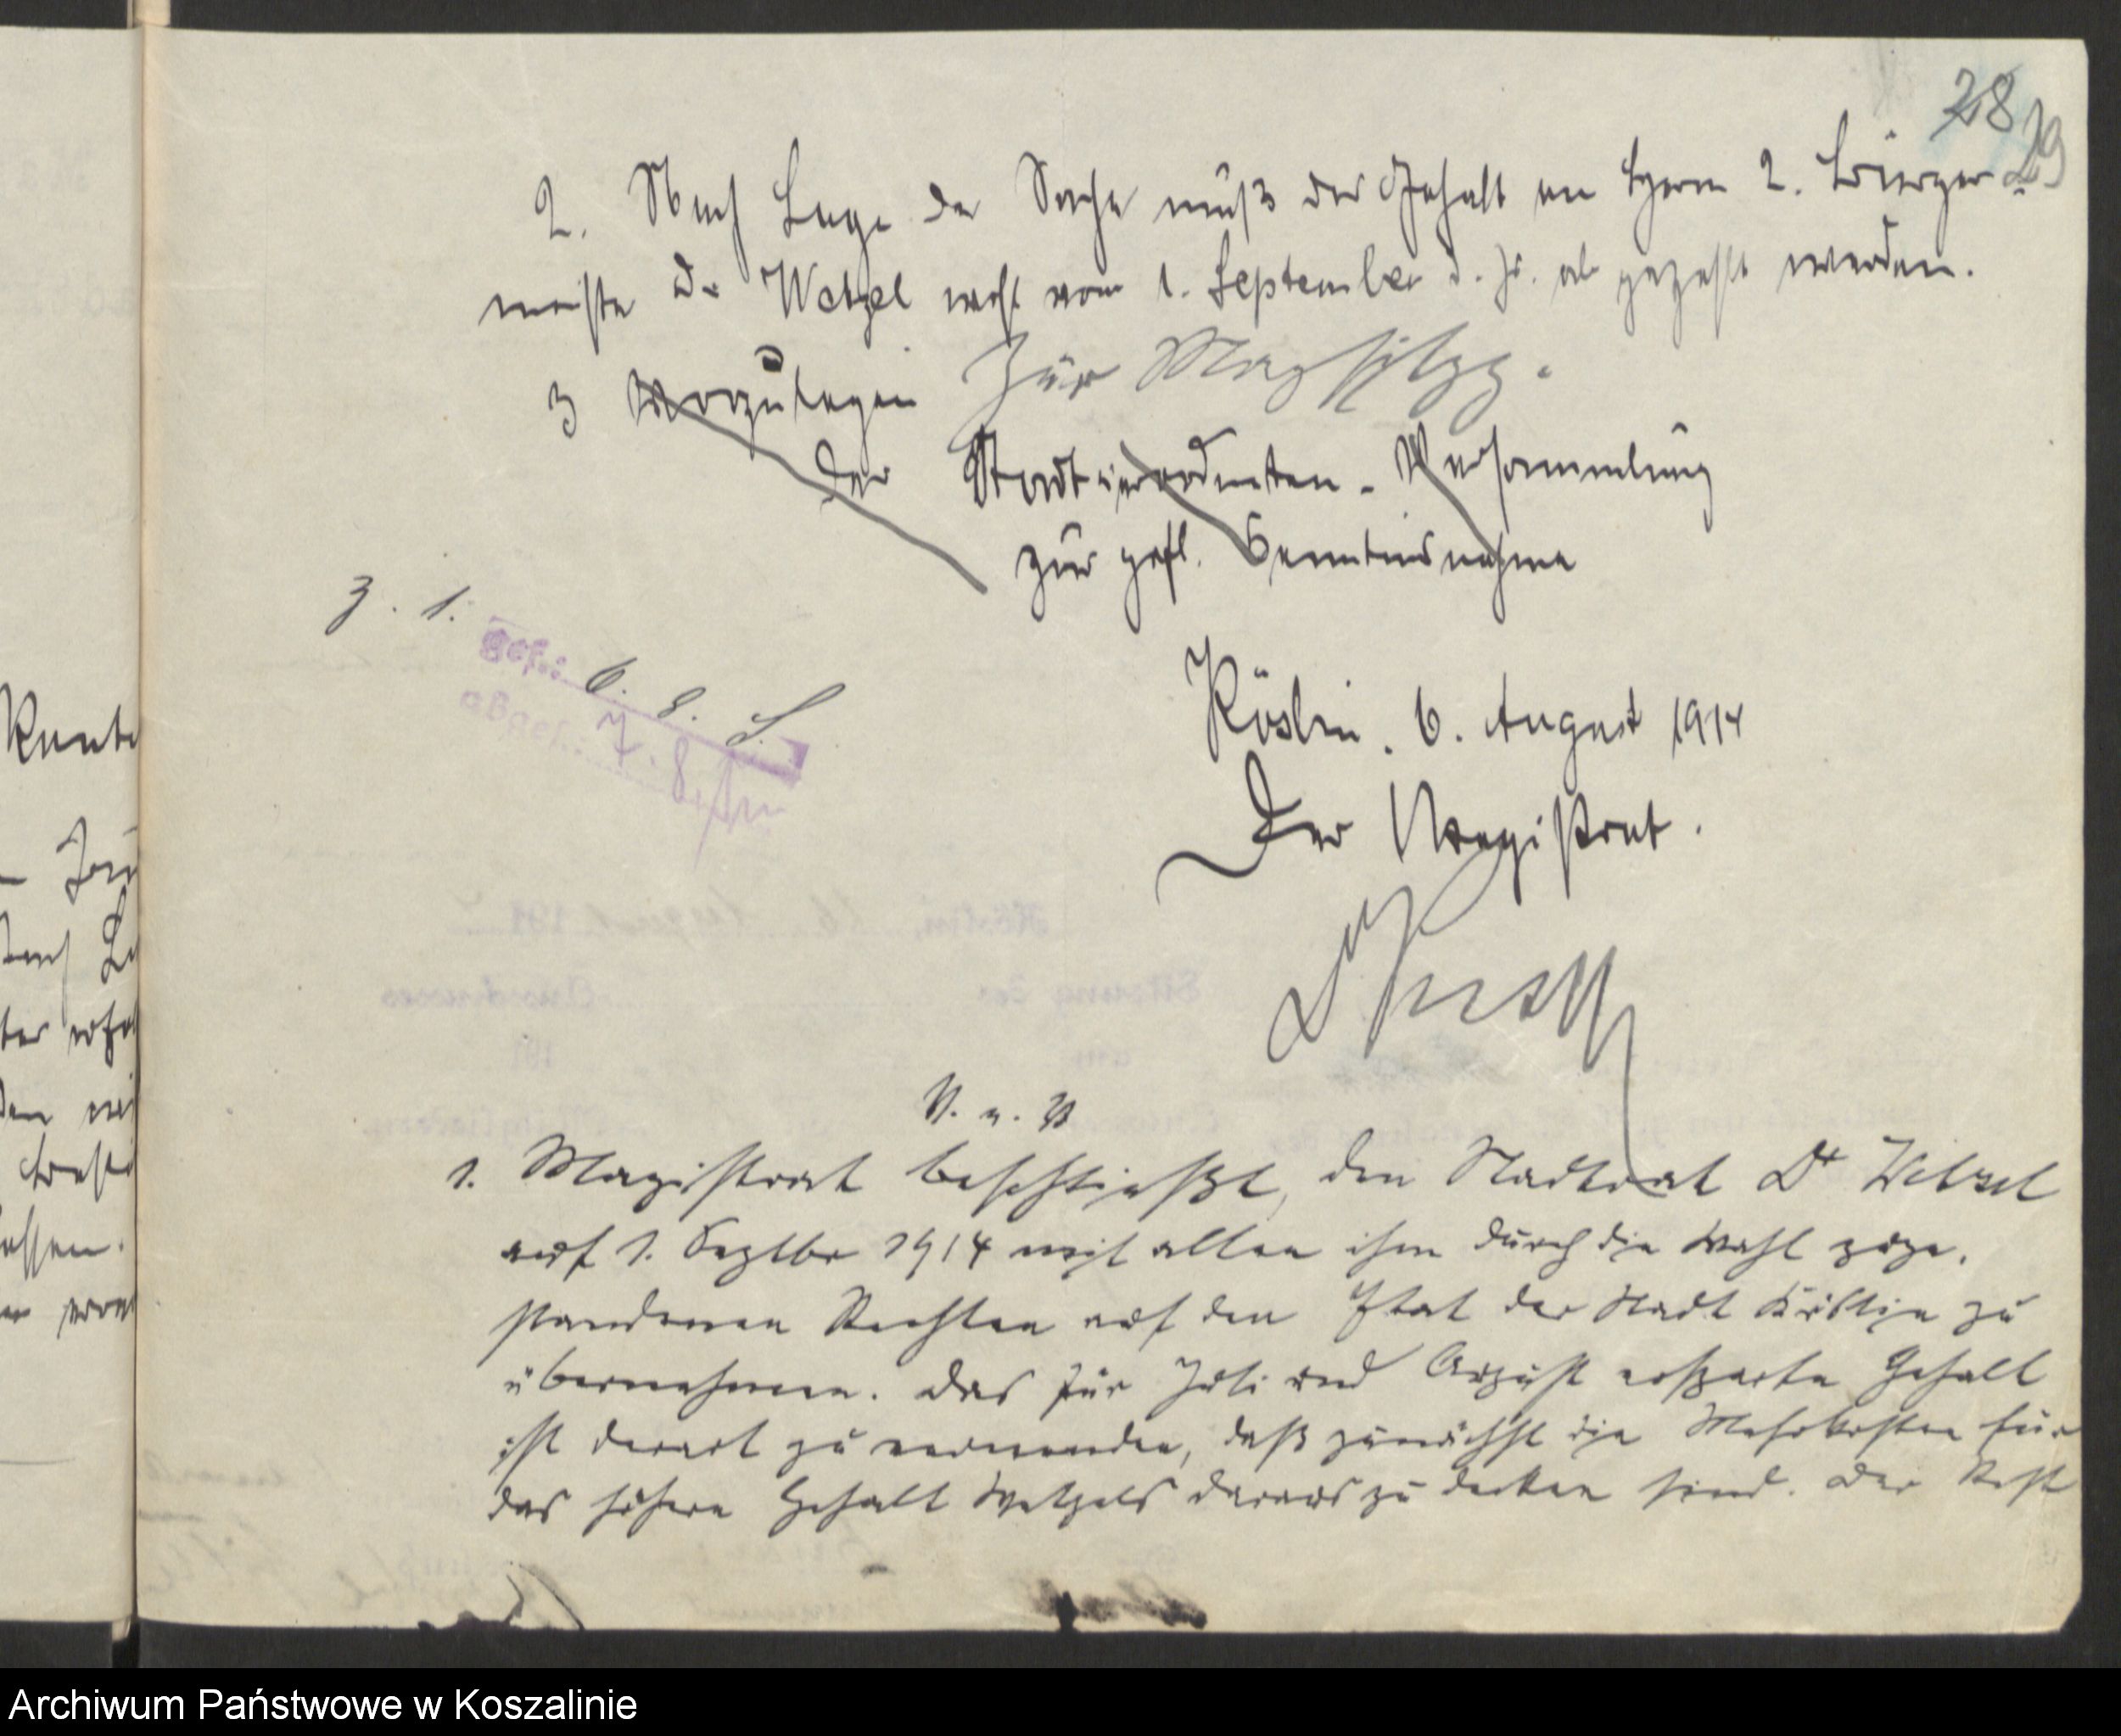 28
29
2. Nach Lage der Sache muß der Gehalt an Herrn 2. Bürger-
meister Dr Wetzel wohl vom 1. September d. Js. ab gezahlt werden.
3 Vorzulegen Zur Mag Sitzg.
der Stadtverordneten-Versammlung
zur gefl. Kenntnisnahme
z. 1.
gef.: 6. 8. S.
abges.: 7. 8.
Köslin. 6. August 1914
Der Magistrat.
V. u. V
1. Magistrat beschließt, den Stadtrat Dr Wetzel
auf 1. Septbr 1914 mit allen ihm durch die Wahl zuge-
standenen Rechten auf den Etat der Stadt Köslin zu
übernehmen. Das für Juli und August ersparte Gehalt
ist derart zu verwenden, daß zunächst die Mehrkosten für
das höhere Gehalt Wetzels daraus zu decken sind. Der Rest
Archiwum Państwowe w Koszalinie